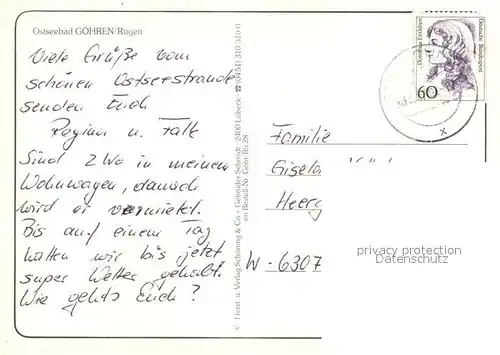 Ostseebad GÖHREN/Rügen
Viele Grüße vom
schönen Ostseestrande
senden Euch
Regina u. Falk
Sind 2 Wo in meinem
Wohnwagen, danach
wird er vermietet.
Bis auf einem Tag
hatten wir bis jetzt
super Wetter gehabt.
Wie gehts Euch?
© Herst. u. Verlag Schöning & Co + Gebrüder Schmidt · 2400 Lübeck · ☎ (0451) 310 310-0
Bestell-Nr. Göh Rü 28
Dorothea Erxleben
Deutsche Bundespost
60
x
Familie
Gisela
Heerg
W-6307
privacy protection
Datenschutz